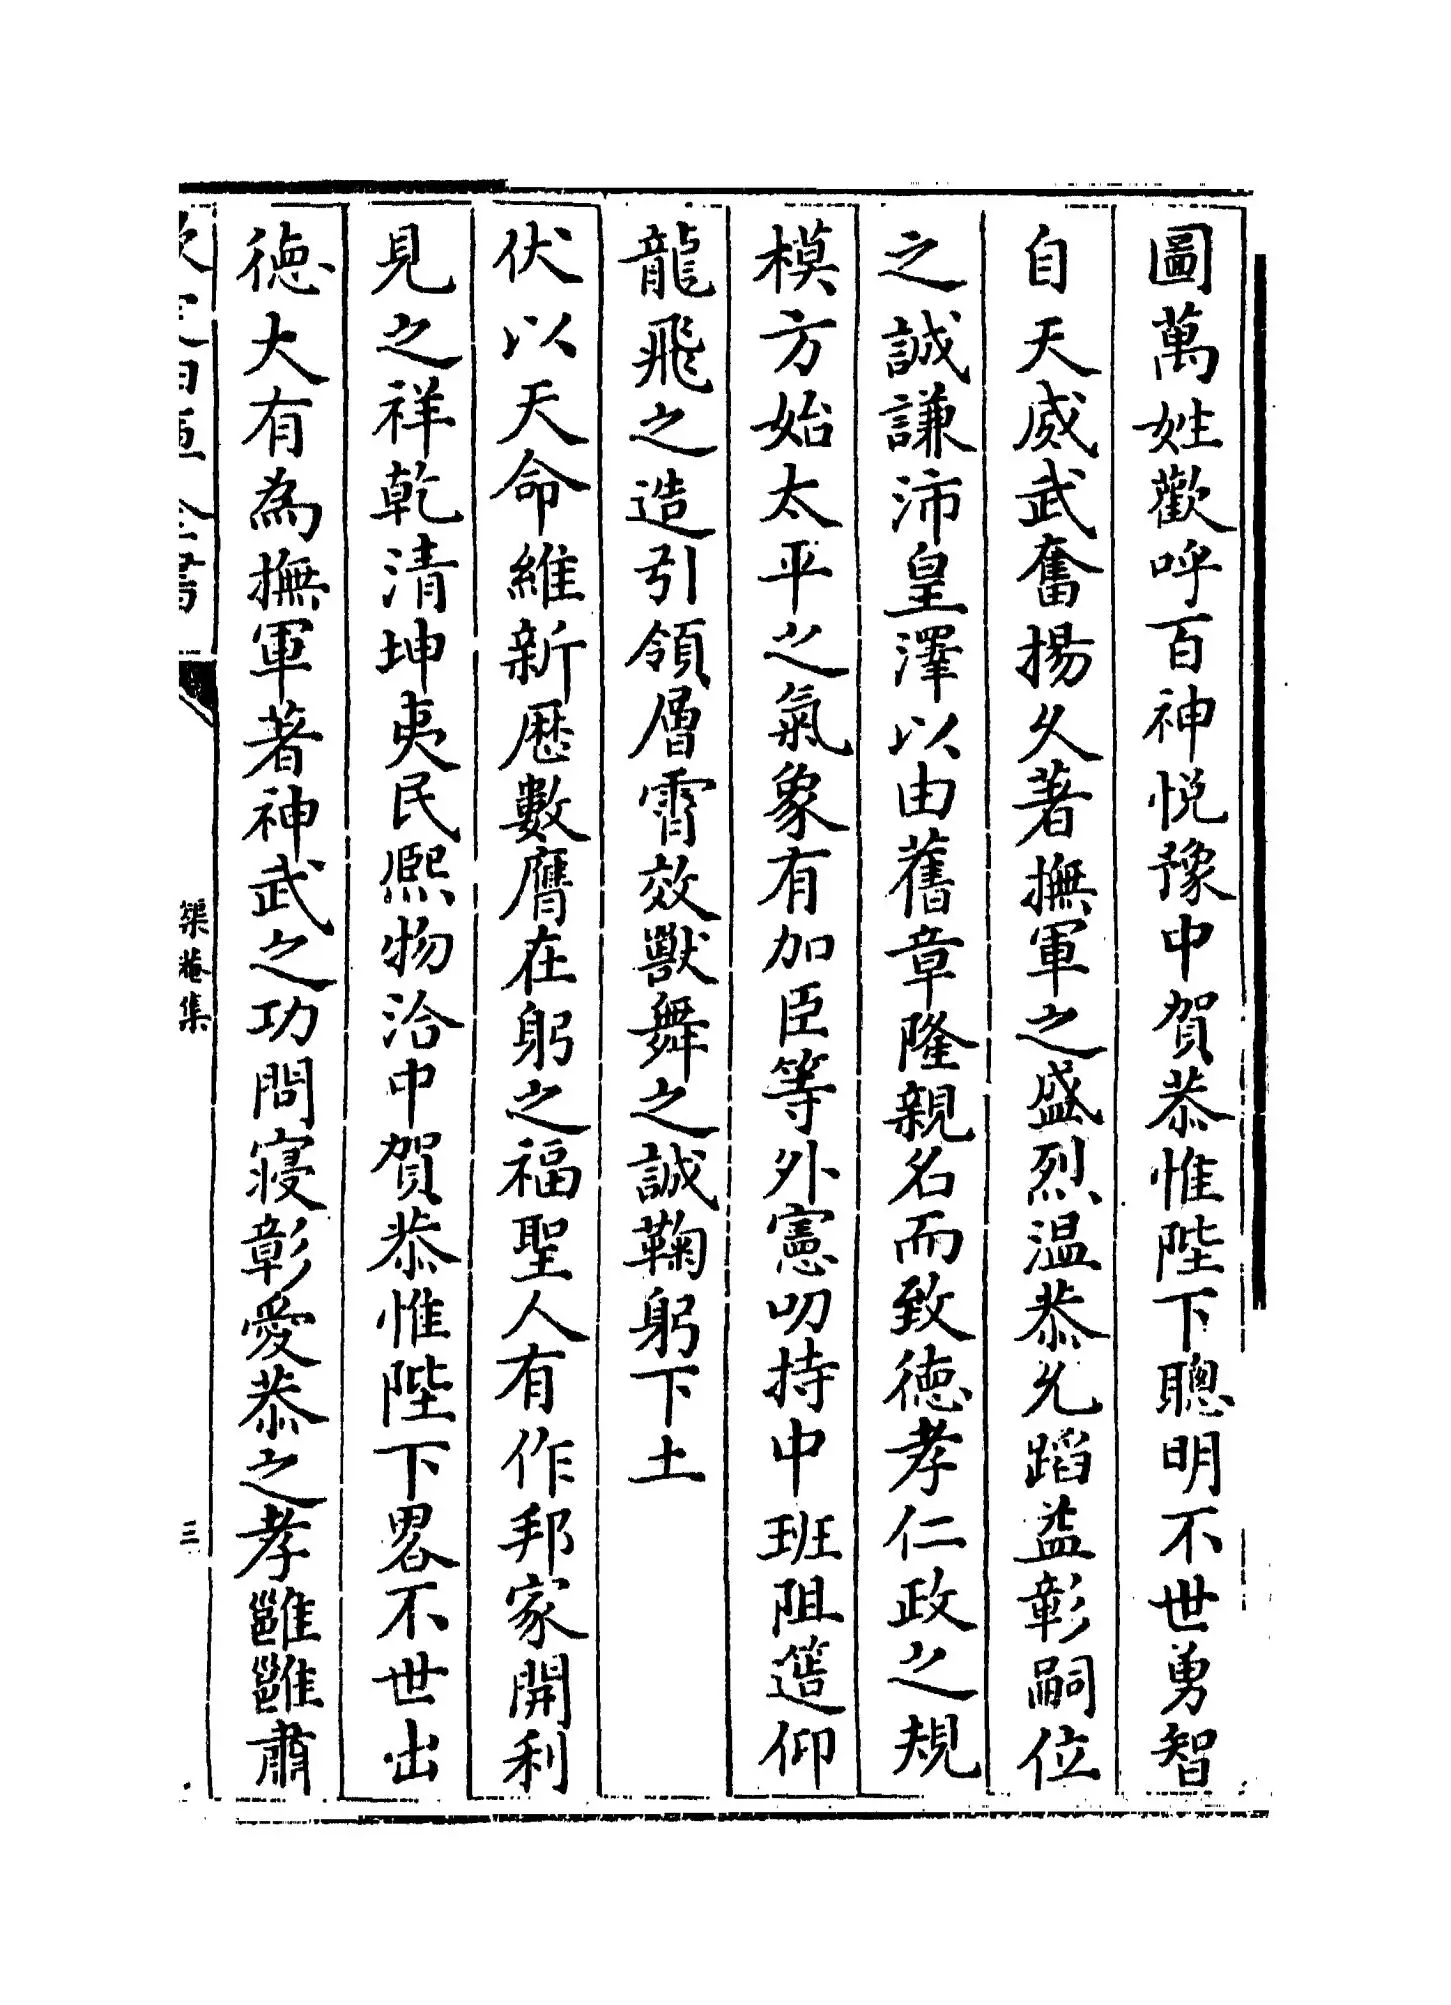 圖萬姓歡呼百神悅豫中賀恭惟陛下聰明不世勇智
自天威武奮揚久著撫軍之盛烈温恭允蹈益彰嗣位
之誠謙沛皇澤以由舊章隆親名而致徳孝仁政之規
模方始太平之氣象有加臣等外憲叨持中班阻簉仰
龍飛之造引領層霄效獸舞之誠鞠躬下土
伏以天命維新厯數膺在躬之福聖人有作邦家開利
見之祥乾清坤夷民熙物洽中賀恭惟陛下畧不世出
徳大有為撫軍著神武之功問寢彰愛恭之孝雝雝肅
欽定四庫全書
榘菴集
三